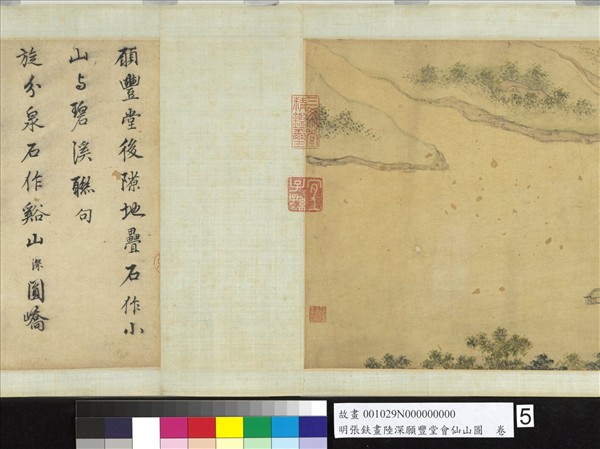 願豐堂後隙地疊石作小
山与碧溪聯句
旋分泉石作谿山深圓嶠
三希堂
精鑑璽
宜
子孫
故畫 001029N000000000
明張鈇畫陸深願豐堂會仙山圖 卷
5